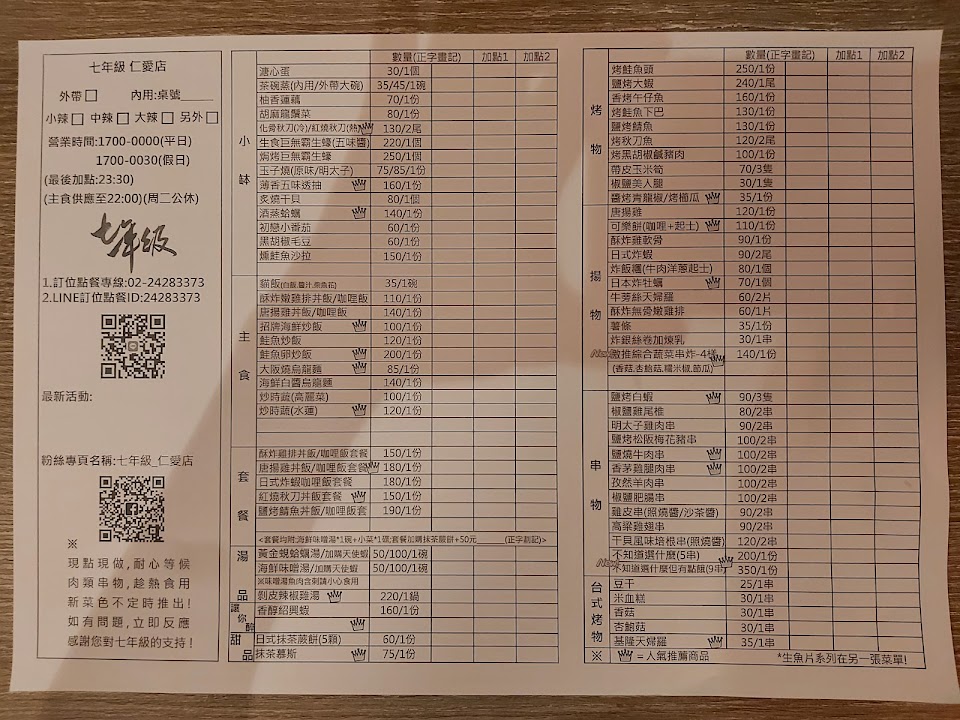 七年級 仁愛店
外帶□ 內用:桌號____
小辣□ 中辣□ 大辣□ 另外□
營業時間:1700-0000(平日)
1700-0030(假日)
(最後加點:23:30)
(主食供應至22:00)(周二公休)
七年級
1.訂位點餐專線:02-24283373
2.LINE訂位點餐ID:24283373
最新活動:
粉絲專頁名稱:七年級_仁愛店
※
現點現做,耐心等候
肉類串物,趁熱食用
新菜色不定時推出!
如有問題,立即反應
感謝您對七年級的支持!
數量(正字畫記) 加點1 加點2
小缽
溏心蛋 30/1個
茶碗蒸(內用/外帶大碗) 35/45/1碗
柚香蓮藕 70/1份
胡麻龍鬚菜 80/1份
化骨秋刀(冷)/紅燒秋刀(熱) 130/2尾
生食巨無霸生蠔(五味醬) 220/1個
焗烤巨無霸生蠔 250/1個
玉子燒(原味/明太子) 75/85/1份
薄香五味透抽 160/1份
炙燒干貝 80/1個
酒蒸蛤蠣 140/1份
初戀小番茄 60/1份
黑胡椒毛豆 60/1份
燻鮭魚沙拉 150/1份
主食
貓飯(白飯,醬汁,柴魚花) 35/1碗
酥炸嫩雞排丼飯/咖哩飯 110/1份
唐揚雞丼飯/咖哩飯 140/1份
招牌海鮮炒飯 100/1份
鮭魚炒飯 120/1份
鮭魚卵炒飯 200/1份
大阪燒烏龍麵 85/1份
海鮮白醬烏龍麵 140/1份
炒時蔬(高麗菜) 100/1份
炒時蔬(水蓮) 120/1份
套餐
酥炸雞排丼飯/咖哩飯套餐 150/1份
唐揚雞丼飯/咖哩飯套餐 180/1份
日式炸蝦咖哩飯套餐 180/1份
紅燒秋刀丼飯套餐 150/1份
鹽烤鯖魚丼飯/咖哩飯套 190/1份
<套餐均附:海鮮味噌湯*1碗+小菜*1碟;套餐加購抹茶蕨餅+50元______(正字劃記)>
湯品
黃金蜆蛤蠣湯/加購天使蝦 50/100/1碗
海鮮味噌湯/加購天使蝦 50/100/1碗
※味噌湯魚肉含刺請小心食用
剝皮辣椒雞湯 220/1鍋
讓你醉
香醇紹興蝦 160/1份
甜品
日式抹茶蕨餅(5顆) 60/1份
抹茶慕斯 75/1份
數量(正字畫記) 加點1 加點2
烤物
烤鮭魚頭 250/1份
鹽烤大蝦 240/1尾
香烤午仔魚 160/1份
烤鮭魚下巴 120/1份
鹽烤鯖魚 130/1份
烤秋刀魚 120/2尾
烤黑胡椒鹹豬肉 100/1份
帶皮玉米筍 70/3隻
椒鹽美人腿 30/1隻
醬烤青龍椒/烤櫛瓜 35/1份
揚物
唐揚雞 120/1份
可樂餅(咖哩+起士) 110/1份
酥炸雞軟骨 90/1份
日式炸蝦 90/2尾
炸飯糰(牛肉洋蔥起士) 80/1個
日本炸牡蠣 70/1個
牛蒡絲天婦羅 60/2片
酥炸無骨嫩雞排 60/1片
薯條 35/1份
炸銀絲卷加煉乳 30/1串
New激推綜合蔬菜串炸-4樣 140/1份
(香菇,杏鮑菇,糯米椒,節瓜)
串物
鹽烤白蝦 90/3隻
椒鹽雞尾椎 80/2串
明太子雞肉串 90/2串
鹽烤松阪梅花豬串 100/2串
鹽燒牛肉串 100/2串
香茅雞腿肉串 100/2串
孜然羊肉串 100/2串
椒鹽肥腸串 100/2串
雞皮串(照燒醬/沙茶醬) 90/2串
高梁雞翅串 90/2串
干貝風味培根串(照燒醬) 120/2串
不知道選什麼(5串) 200/1份
New不知道選什麼但有點餓(9串) 350/1份
台式烤物
豆干 25/1串
米血糕 30/1串
香菇 30/1串
杏鮑菇 30/1串
基隆天婦羅 35/1串
※ =人氣推薦商品 *生魚片系列在另一張菜單!